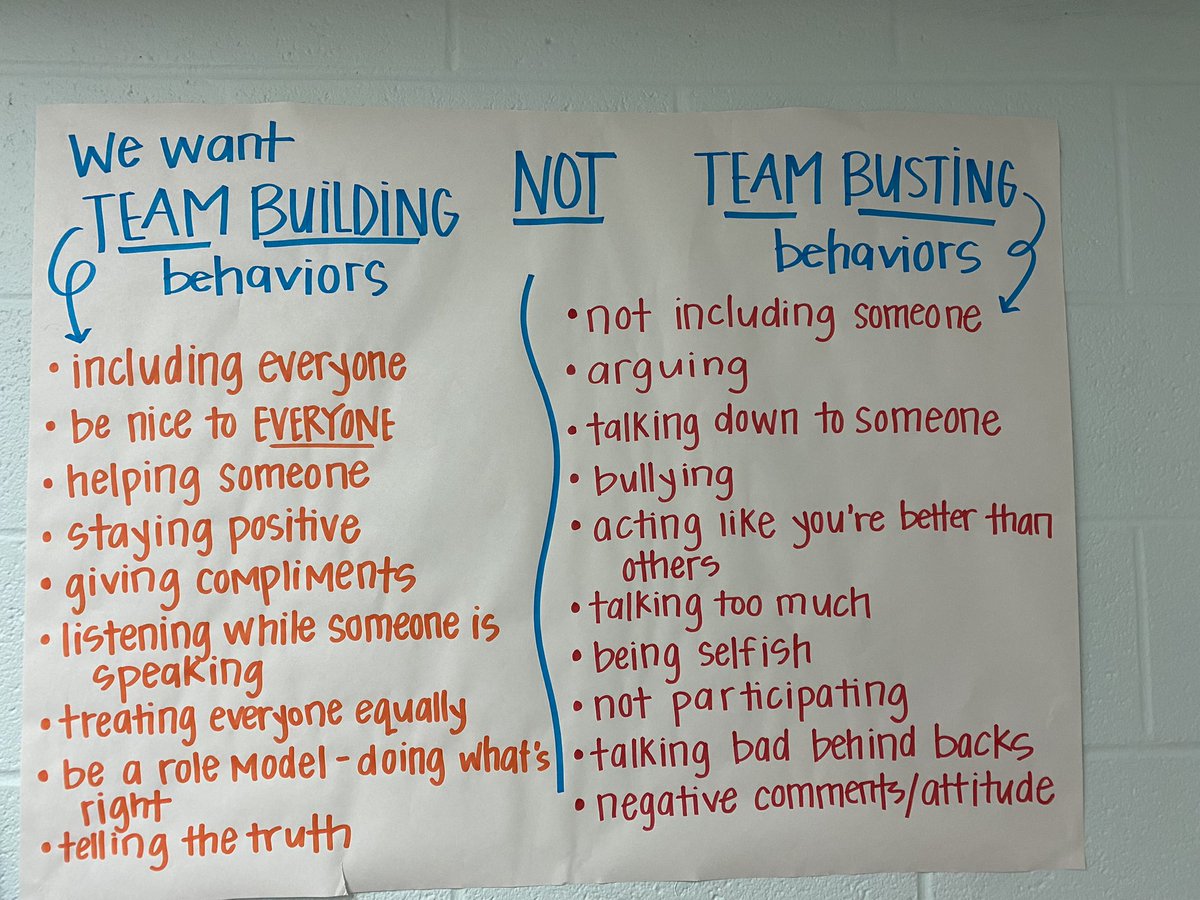 We want
TEAM BUILDING
behaviors
• including everyone
• be nice to EVERYONE
• helping someone
• staying positive
• giving compliments
• listening while someone is
speaking
• treating everyone equally
• be a role model - doing what's
right
• telling the truth
NOT
TEAM BUSTING
behaviors
• not including someone
• arguing
• talking down to someone
• bullying
• acting like you're better than
others
• talking too much
• being selfish
• not participating
• talking bad behind backs
• negative comments/attitude